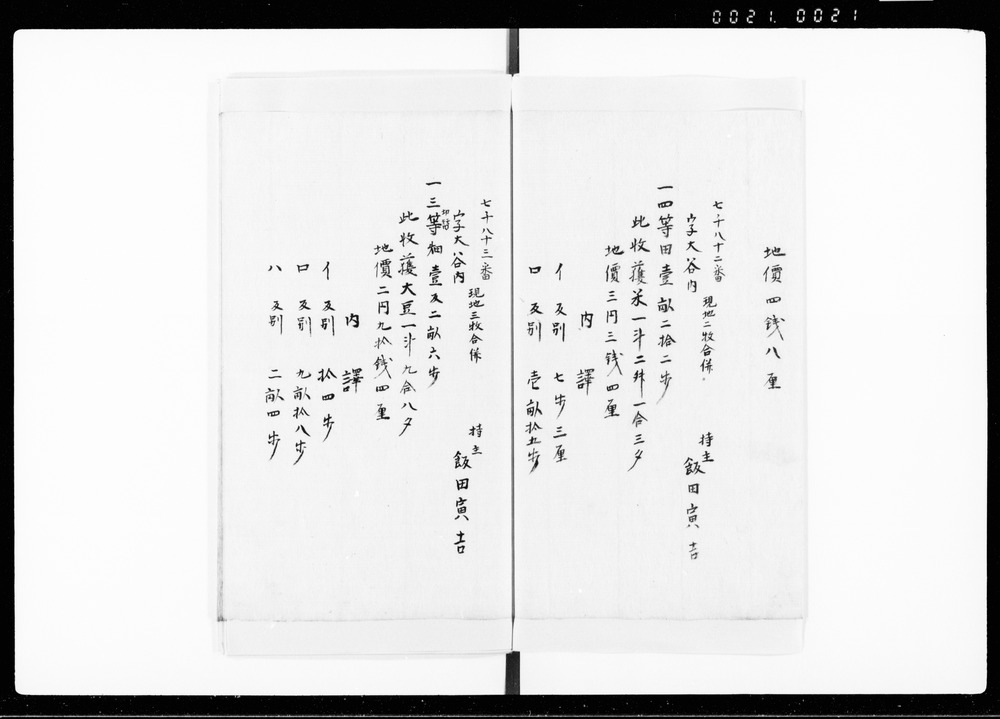 0021. 0021
地價四銭八厘
七千八十二番
字大谷内
現地二牧合併.
持主
飯田寅吉
一四等田壹畝二拾二歩
此收獲米一斗二舛一合三夕
地價三円三銭四厘
内譯
イ反別七歩三厘
ロ反別壱畝拾五歩
七千八十三番
字大谷内
現地三牧合併
持主
飯田寅吉
一三等畑壹反二畝六歩
此收獲大豆一斗九合八夕
地價二円九拾銭四厘
内譯
イ反別拾四歩
ロ反別九畝拾八歩
ハ反別二畝四歩